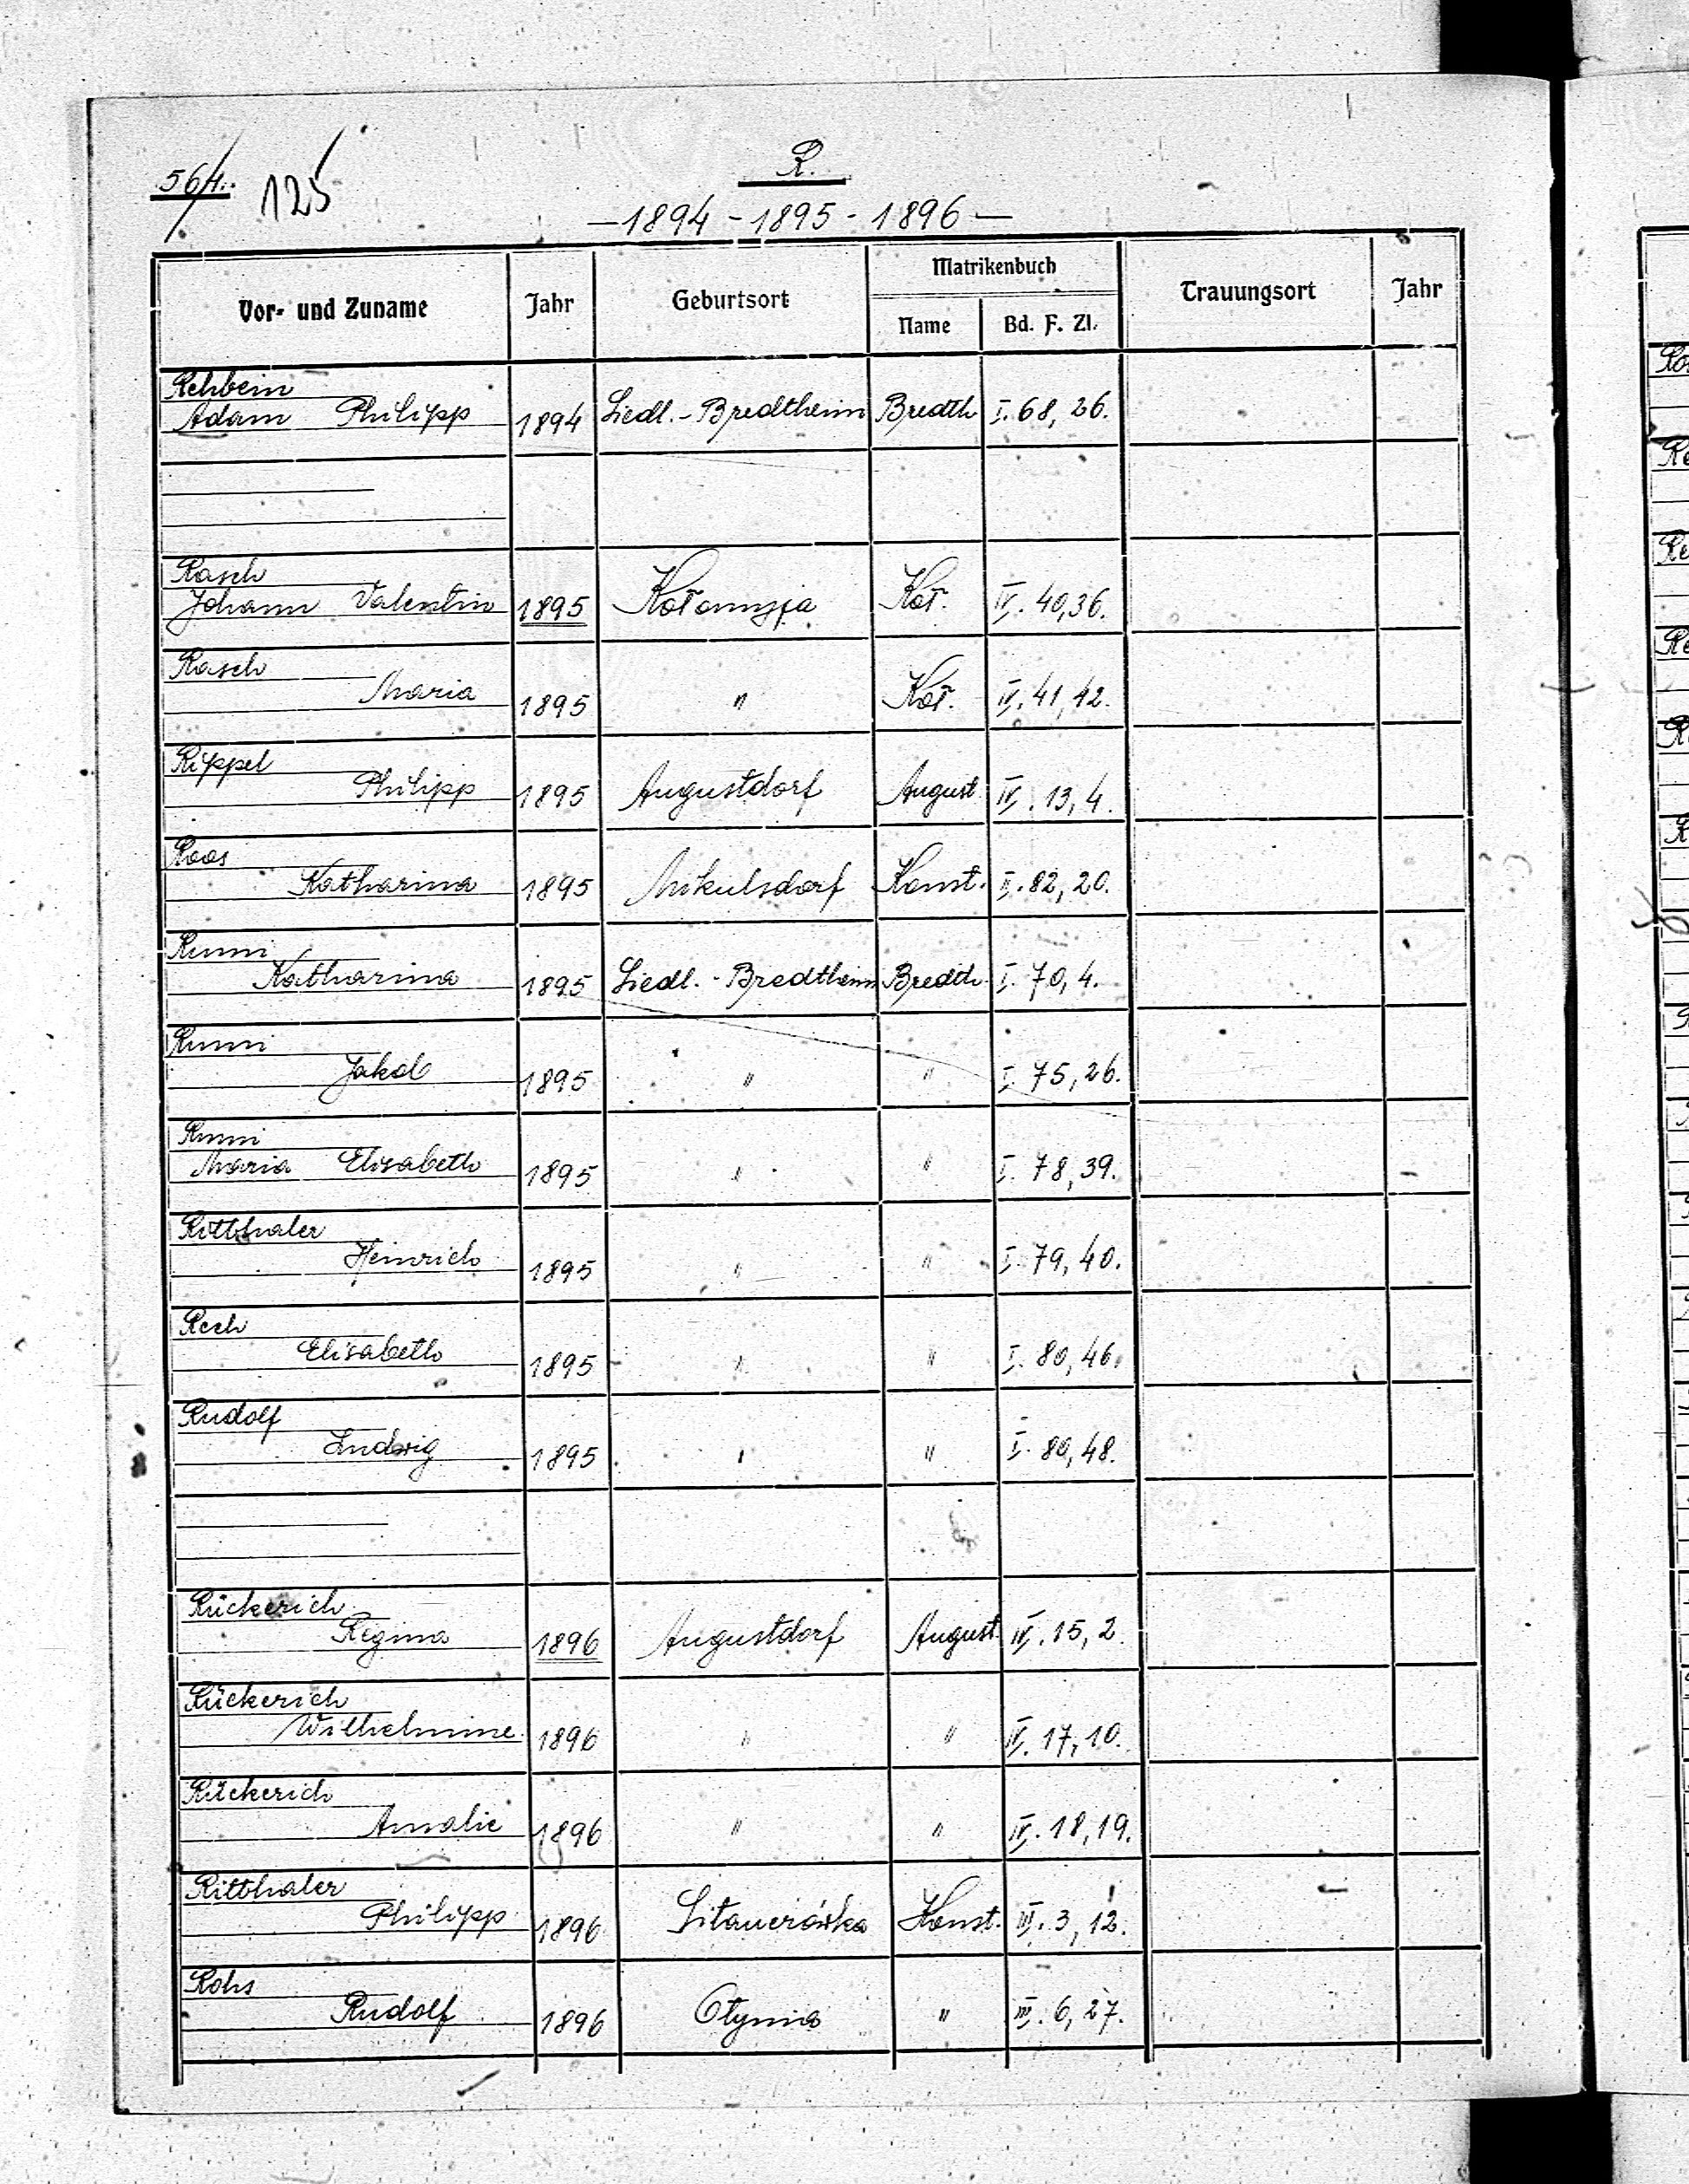 564.
125
R.
—1894 - 1895 - 1896—
Vor- und Zuname Jahr Geburtsort Matrikenbuch Trauungsort Jahr
Name Bd. F. Zl.
Rehbein
Adam Philipp 1894 Siedl.-Bredtheim Bredth I. 68, 26.
Rasch
Johann Valentin 1895 Kołomyja Koł. IV. 40, 36.
Rasch
Maria 1895 " Koł. IV. 41, 42.
Rippel
Philipp 1895 Augustdorf August IV. 13, 4.
Roos
Katharina 1895 Mikulsdorf Konst. II. 82, 20.
Rummi
Katharina 1895 Siedl.-Bredtheim Bredth. I. 70, 4.
Rummi
Jakob 1895 " " I. 75, 26.
Rummi
Maria Elisabeth 1895 " " I. 78, 39.
Ritthaler
Heinrich 1895 " " I. 79, 40.
Rech
Elisabeth 1895 " " I. 80, 46.
Rudolf
Ludwig 1895 " " I. 80, 48.
Rückerich
Regina 1896 Augustdorf August. IV. 15, 2.
Rückerich
Wilhelmine 1896 " " IV. 17, 10.
Rückerich
Amalie 1896 " " IV. 18, 19.
Ritthaler
Philipp 1896 Konst. III. 3, 12.
Rohs
Rudolf 1896 Otynia " III. 6, 27.